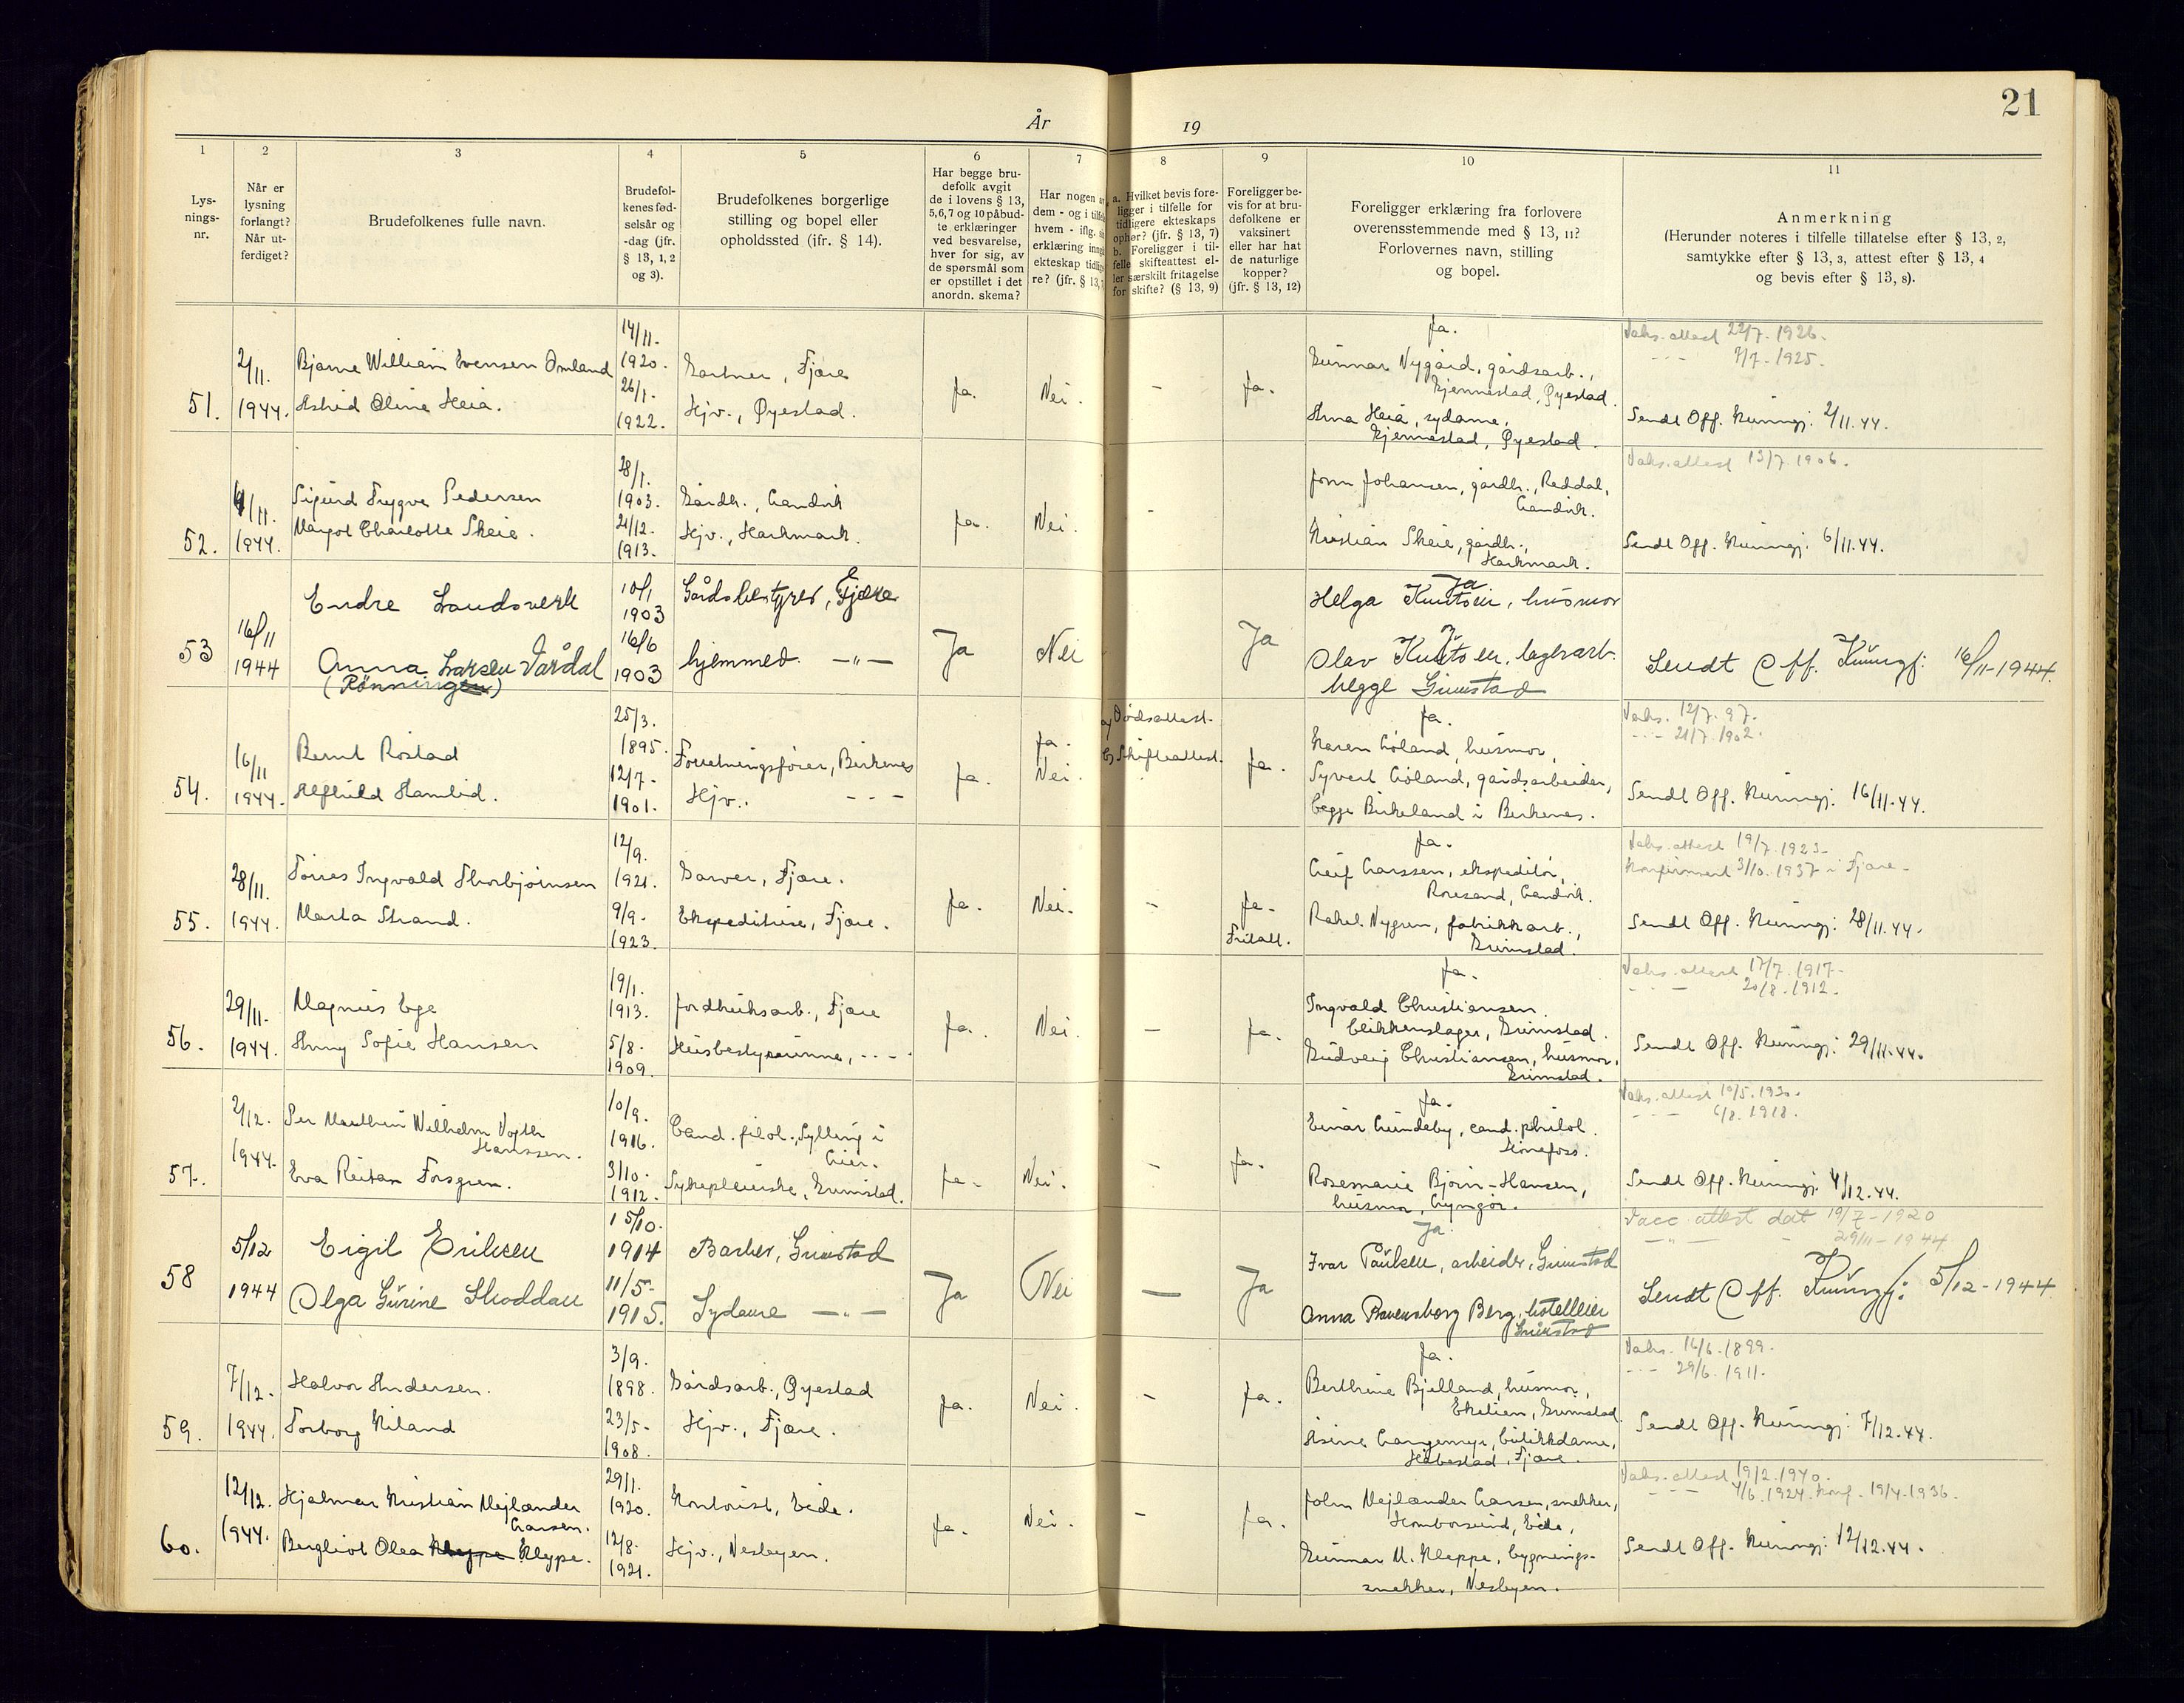 21
År 19
1
2
3
4
5
6
7
8
9
10
11
Lys-
nings-
nr.
Når er
lysning
forlangt?
Når ut-
ferdiget?
Brudefolkenes fulle navn.
Brudefol-
kenes fød-
selsår og
-dag (jfr.
§ 13, 1, 2
og 3).
Brudefolkenes borgerlige
stilling og bopel eller
opholdssted (jfr. § 14).
Har begge bru-
defolk avgit
de i lovens § 13,
5, 6, 7 og 10 påbud-
te erklæringer
ved besvarelse,
hver for sig, av
de spørsmål som
er opstillet i det
anordn. skema?
Har nogen
dem - og i
hvem - iflg.
erklæring
ekteskap
re? (jfr. § 13,
a. Hvilket bevis fore-
ligger i tilfelle for
tidligere ekteskaps
ophør? (jfr. § 13, 7)
b. Foreligger i til-
felle skifteattest el-
ler særskilt fritagelse
for skifte? (§ 13, 9)
Foreligger be-
vis for at bru-
defolkene er
vaksinert
eller har hat
de naturlige
kopper?
(jfr. § 13, 12)
Foreligger erklæring fra forlovere
overensstemmende med § 13, 11?
Forlovernes navn, stilling
og bopel.
Anmerkning
(Herunder noteres i tilfelle tillatelse efter § 13, 2,
samtykke efter § 13, 3, attest efter § 13, 4
og bevis efter § 13, 8).
51.
2/11.
1944.
Bjarne William Evensen Omland
Astrid Oline Heia.
14/11.
1920.
26/1.
1922.
Gartner, Fjære
Hjv., Øyestad.
Ja.
Nei.
-
Ja.
Ja.
Gunnar Nygård, gårdsarb.,
Bjennestad, Øyestad.
Anna Heia, sydame,
Bjennestad, Øyestad.
Vaks. attest 22/7. 1926.
- - - 7/7 - 1925.
Sendt Off. Kunngj: 2/11.44.
52.
6/11.
1944.
Sigurd Trygve Pedersen
Margot Charlotte Skeie.
28/1.
1903.
21/12.
1913.
Gårdb., Landvik
Hjv., Harkmark.
Ja.
Nei.
-
John Johansen, gårdb., Reddal,
Landvik.
Kristian Skeie, gårdb.,
Harkmark.
Vaks. attest 13/7. 1906.
Sendt Off. Kunngj: 6/11.44.
53
16/11
1944
Endre Landsverk
Anna Larsen Vårdal
(Rønningen)
10/1
1903
16/6
1903
Gårdsbestyrer, Fjære
hjemmed. -"-
Ja
Nei
Ja
Ja
Helga Knutsen, husmor
Olav Knutsen, lagerarb.
begge Grimstad
Sendt Off. Kunngj: 16/11-1944.
54.
16/11
1944.
Bernt Rostad
Alfhild Hamlid.
25/3.
1895.
12/7-
1901.
Forretningsfører, Birkenes
Hjv.. - - -
Ja.
Ja.
Nei.
a) Dødsattest.
b) Skifteattest.
Ja.
Ja.
Karen Løland, husmor,
Syvert Løland, gårdsarbeider,
begge Birkeland i Birkenes.
Vaks. 12/7. 97.
- - - 21/7. 1902.
Sendt Off. Kunngj: 16/11.44.
55.
28/11.
1944.
Torres Ingvald Thorbjørnsen
Marta Strand.
12/9.
1921.
9/9.
1923.
Garver, Fjære.
Ekspeditrise, Fjære.
Ja.
Nei.
-
Ja.
Fritatt.
Ja.
Leif Larssen, ekspeditør,
Roresand, Landvik.
Rakel Nygren, fabrikkarb.,
Grimstad.
Vaks. attest 19/7. 1923.
Konfirmert 3/10. 1937 i Fjære.
Sendt Off. Kunngj: 28/11.44.
56.
29/11.
1944.
Magnus Ege
Anny Sofie Hansen
19/1.
1913.
5/8.
1909.
Jordbruksarb., Fjære
Husbestyrerinne, - - -
Ja.
Nei.
-
Ja.
Ja.
Ingvald Christiansen.
blikkenslager, Grimstad.
Gudveig Christiansen, husmor,
Grimstad.
Vaks. attest 17/7. 1917.
- - - 20/8. 1912.
Sendt Off. Kunngj: 29/11.44.
57.
2/12.
1944.
Per Mauthin Wilhelm Vogth
Hanssen.
Eva Reitan Forsgren.
10/9.
1916.
3/10.
1912.
Cand. filol., Sylling i
Lier.
Sykepleierske, Grimstad.
Ja.
Nei.
-
Ja.
Ja.
Einar Lundeby, cand. philol.
Hønefoss.
Rosemarie Bjørn-Hansen,
husmor, Lyngør.
Vaks. attest 10/5. 1920.
- - - 6/8. 1918.
Sendt Off. Kunngj: 4/12.44.
58
5/12
1944
Eigil Eriksen
Olga Gurine Skoddan
15/10.
1914
11/5-
1915.
Barber, Grimstad
Sydame -"-
Ja
Nei
-
Ja
Ja
Ivar Paulsen, arbeider, Grimstad
Anna Ravensborg Berg, hotelleier
Grimstad
Vacc. attest dat 19/7-1920
-"- - 29/11-1944
Sendt Off. Kunngj: 5/12-1944
59.
7/12.
1944.
Halvor Andersen.
Torborg Kiland
3/9.
1898.
23/5-
1908.
Gårdsarb., Øyestad
Hjv., Fjære.
Ja.
Nei.
-
Ja.
Ja.
Berthine Bjelland, husmor,
Ekelien, Grimstad.
Asine Langemyr, butikkdame,
Håbestad, Fjære.
Vaks. 16/6. 1899.
- - - 29/6. 1911.
Sendt Off. Kunngj: 7/12.44.
60.
12/12.
1944.
Hjalmar Kristian Mejlænder
Larsen.
Bergliot Olea Kleppe Kleppe.
29/1.
1920.
12/8.
1921.
Kontorist, Eide.
Hjv., Nesbyen.
Ja.
Nei.
-
Ja.
John Mejlænder Larsen, snekker,
Homborsund, Eide,
Gunnar M. Kleppe, bygnings-
snekker, Nesbyen.
Vaks. attest 19/2. 1940.
- - - 4/6. 1924. Konf. 19/4. 1936.
Sendt Off. Kunngj: 12/12.44.